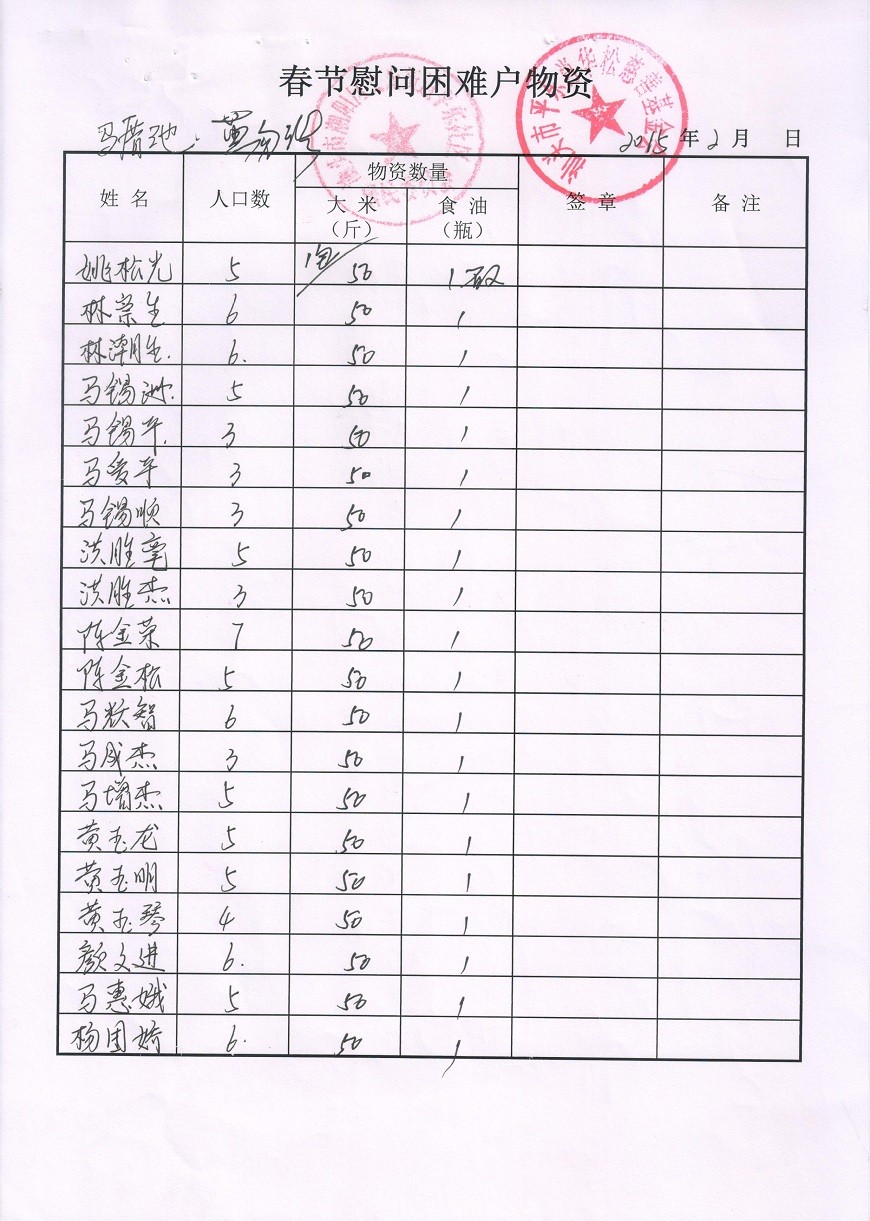 春节慰问困难户物资
2015年2月 日
姓名 人口数 物资数量 签章 备注
大米（斤） 食油（瓶）
姚松光 5 50 1
林崇生 6 50 1
林潮胜 6. 50 1
马锡洲 5 50 1
马锡平 3 50 1
马爱平 3 50 1
马锡顺 3 50 1
洪胜 5 50 1
洪胜杰 3 50 1
陈金荣 7 50 1
陈金松 5 50 1
马 智 6 50 1
马成杰 3 50 1
马增杰 5 50 1
黄玉龙 5 50 1
黄玉明 5 50 1
黄玉琴 4 50 1
颜文进 6. 50 1
马惠娥 5 50 1
杨国娇 6. 50 1